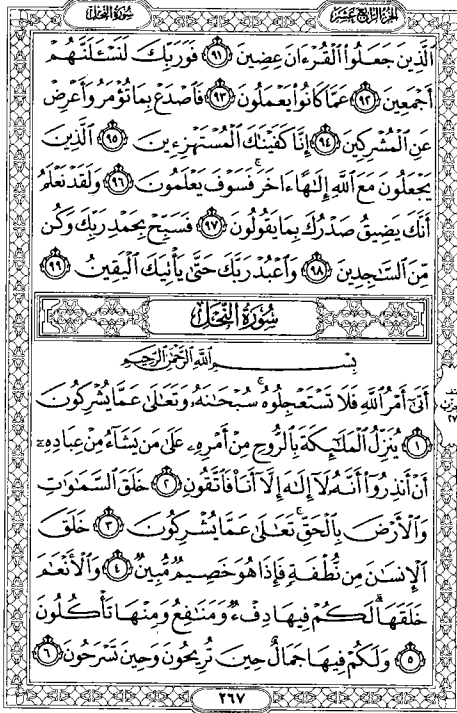 سُورَةُ النَّحْلِ الجُزْءُ الرَّابِعَ عَشَرَ
الَّذِينَ جَعَلُوا الْقُرْءَانَ عِضِينَ ٩١ فَوَرَبِّكَ لَنَسْـَٔلَنَّهُمْ
أَجْمَعِينَ ٩٢ عَمَّا كَانُوا يَعْمَلُونَ ٩٣ فَاصْدَعْ بِمَا تُؤْمَرُ وَأَعْرِضْ
عَنِ الْمُشْرِكِينَ ٩٤ إِنَّا كَفَيْنَاكَ الْمُسْتَهْزِءِينَ ٩٥ الَّذِينَ
يَجْعَلُونَ مَعَ اللَّهِ إِلَٰهًا ءَاخَرَ ۚ فَسَوْفَ يَعْلَمُونَ ٩٦ وَلَقَدْ نَعْلَمُ
أَنَّكَ يَضِيقُ صَدْرُكَ بِمَا يَقُولُونَ ٩٧ فَسَبِّحْ بِحَمْدِ رَبِّكَ وَكُن
مِّنَ السَّٰجِدِينَ ٩٨ وَاعْبُدْ رَبَّكَ حَتَّىٰ يَأْتِيَكَ الْيَقِينُ ٩٩
سُورَةُ النَّحْلِ
بِسْمِ اللَّهِ الرَّحْمَٰنِ الرَّحِيمِ
أَتَىٰٓ أَمْرُ اللَّهِ فَلَا تَسْتَعْجِلُوهُ ۚ سُبْحَٰنَهُۥ وَتَعَٰلَىٰ عَمَّا يُشْرِكُونَ
١ يُنَزِّلُ الْمَلَٰٓئِكَةَ بِالرُّوحِ مِنْ أَمْرِهِۦ عَلَىٰ مَن يَشَآءُ مِنْ عِبَادِهِۦٓ
أَنْ أَنذِرُوٓا أَنَّهُۥ لَآ إِلَٰهَ إِلَّآ أَنَا۠ فَاتَّقُونِ ٢ خَلَقَ السَّمَٰوَٰتِ
وَالْأَرْضَ بِالْحَقِّ ۚ تَعَٰلَىٰ عَمَّا يُشْرِكُونَ ٣ خَلَقَ
الْإِنسَٰنَ مِن نُّطْفَةٍ فَإِذَا هُوَ خَصِيمٌ مُّبِينٌ ٤ وَالْأَنْعَٰمَ
خَلَقَهَا ۗ لَكُمْ فِيهَا دِفْءٌ وَمَنَٰفِعُ وَمِنْهَا تَأْكُلُونَ
٥ وَلَكُمْ فِيهَا جَمَالٌ حِينَ تُرِيحُونَ وَحِينَ تَسْرَحُونَ ٦
٢٦٧